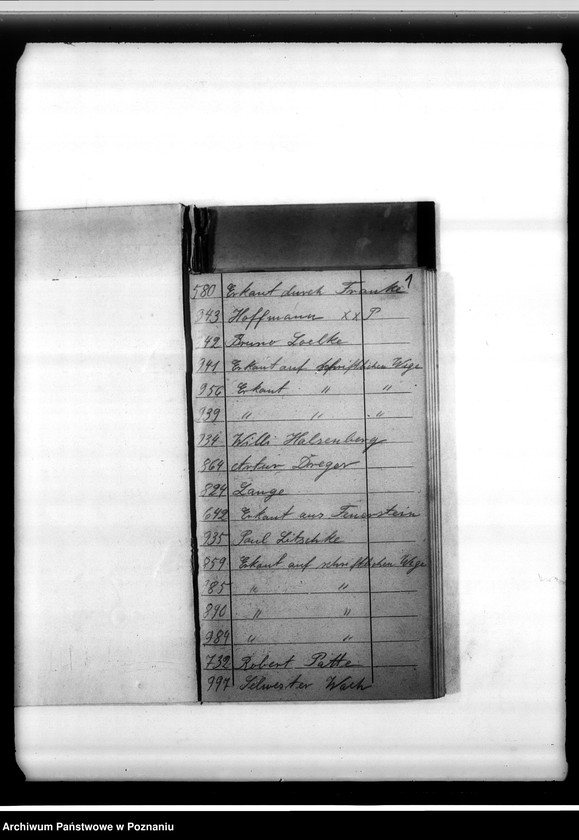 1
580 Erkant durch Franke
343 Hoffmann x x P
42 Bruno Loelke
341 Erkant auf schriftlichen Wege
956 Erkant " "
339 " " "
334 Willi Halsenberg
864 Artur Dreger
824 Lange
642 Erkant aus Feuerstein
335 Paul Litschke
859 Erkant auf schriftlichen Wege
85 " "
890 " "
984 " "
732 Robert Patte
997 Silvester Wach
Archiwum Państwowe w Poznaniu